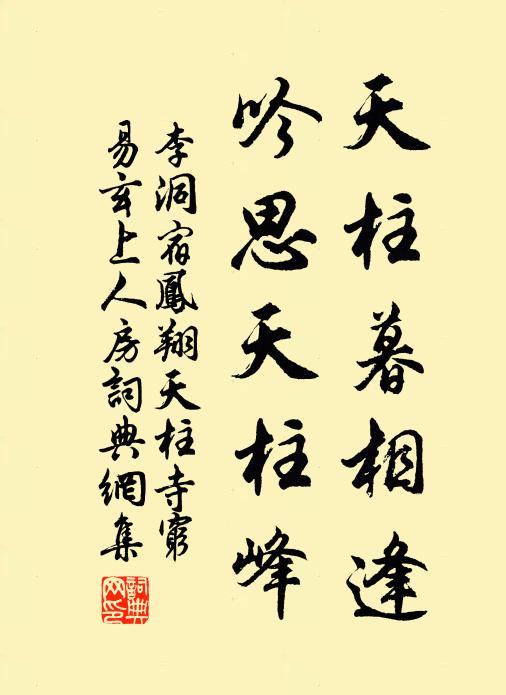 天柱暮相逢
吟思天柱峰
李洞宿鳳翔天柱寺窮
易玄上人房詞典網集
詞典网印